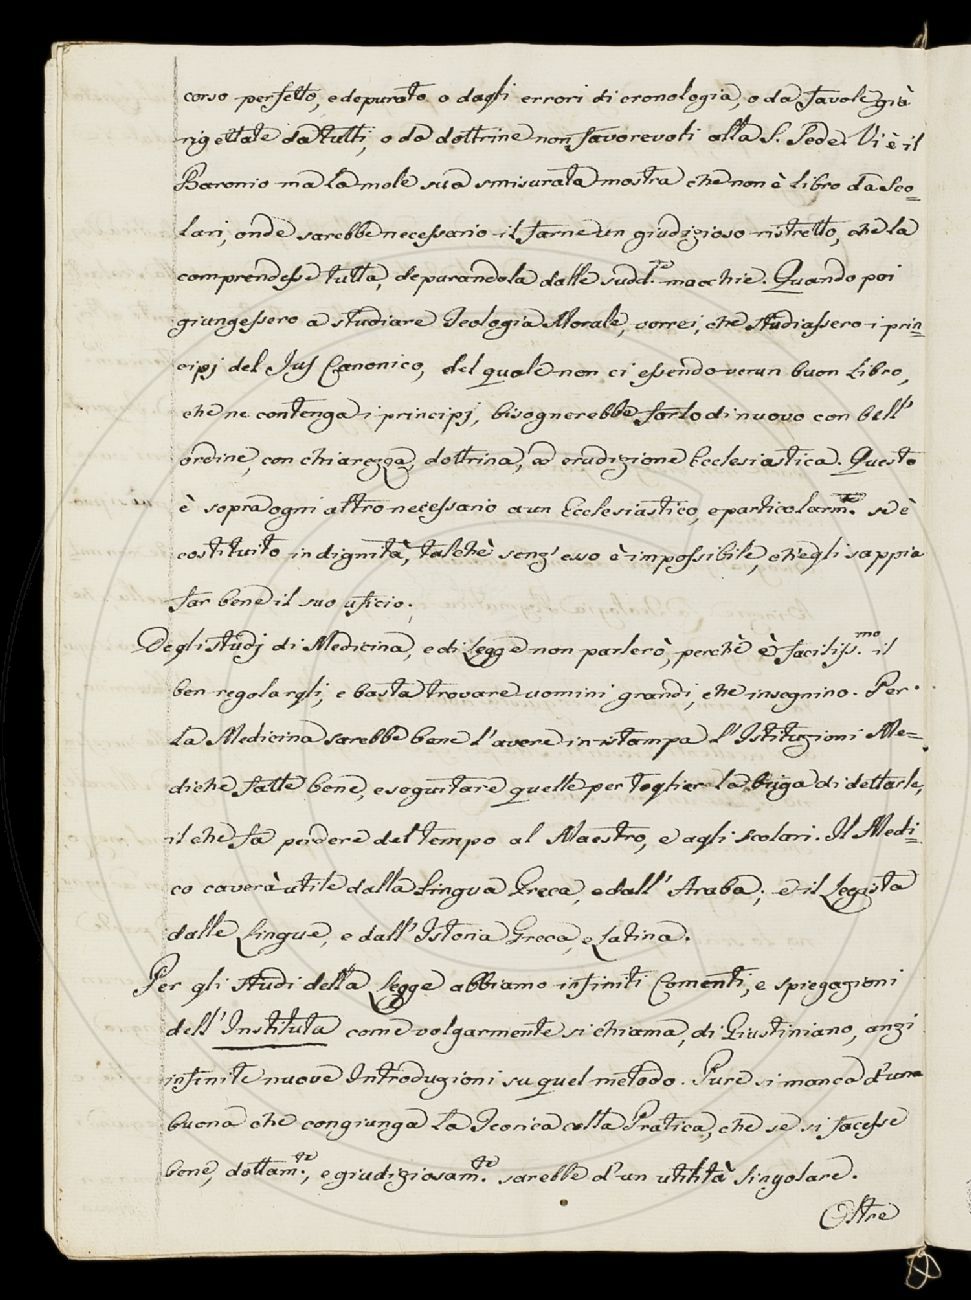 corso perfetto, e depurato o dagli errori di cronologia, o da favole già
rigettate da tutti, o da dottrine non favorevoli alla S. Sede. Vi è il
Baronio ma la mole sua smisurata mostra che non è libro da Sco=
lari, onde sarebbe necessario il farne un giudizioso ristretto, che la
comprendesse tutta, depurandola dalle sudd.te macchie. Quando poi
giungessero a studiare Teologia Morale, vorrei, che studiassero i prin=
cipj del Jus Canonico, del quale non ci essendo verun buon Libro,
che ne contenga i principj, bisognerebbe farlo di nuovo con bell'
ordine, con chiarezza, dottrina, ed erudizione Ecclesiastica. Questo
è sopra ogni altro necessario a un Ecclesiastico, e particolarm.te se è
costituito in dignità, talchè senz' esso è impossibile, ch'egli sappia
far bene il suo uficio.
Degli studj di Medicina, e di Legge non parlerò, perchè è faciliss.mo il
ben regolargli, e basta trovare uomini grandi, che insegnino. Per
la Medicina sarebbe bene l'avere in istampa l'Istituzioni Me=
diche fatte bene, e seguitare quelle per toglier la briga di dettarle,
il che fa perdere del tempo al Maestro, e agli scolari. Il Medi=
co caverà utile dalla Lingua Greca, e dall' Araba; e il Legista
dalle Lingue, e dall' Istoria Greca, e Latina.
Per gli studi della Legge abbiamo infiniti Comenti, e spiegazioni
dell' Instituta come volgarmente si chiama, di Giustiniano, anzi
infinite nuove Introduzioni su quel metodo. Pure si manca d'una
buona che congiunga la Teorica colla Pratica, che se si facesse
bene, dottam.te, e giudiziosam.te sarebbe d'un utilità singolare.
Oltre